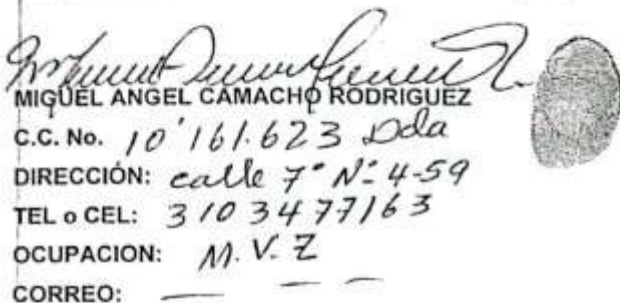 MIGUEL ANGEL CAMACHO RODRIGUEZ
C.C. No. 10'161.623 Dda
DIRECCIÓN: calle 7ª Nº 4-59
TEL o CEL: 3103477163
OCUPACION: M.V.Z
CORREO: — — —